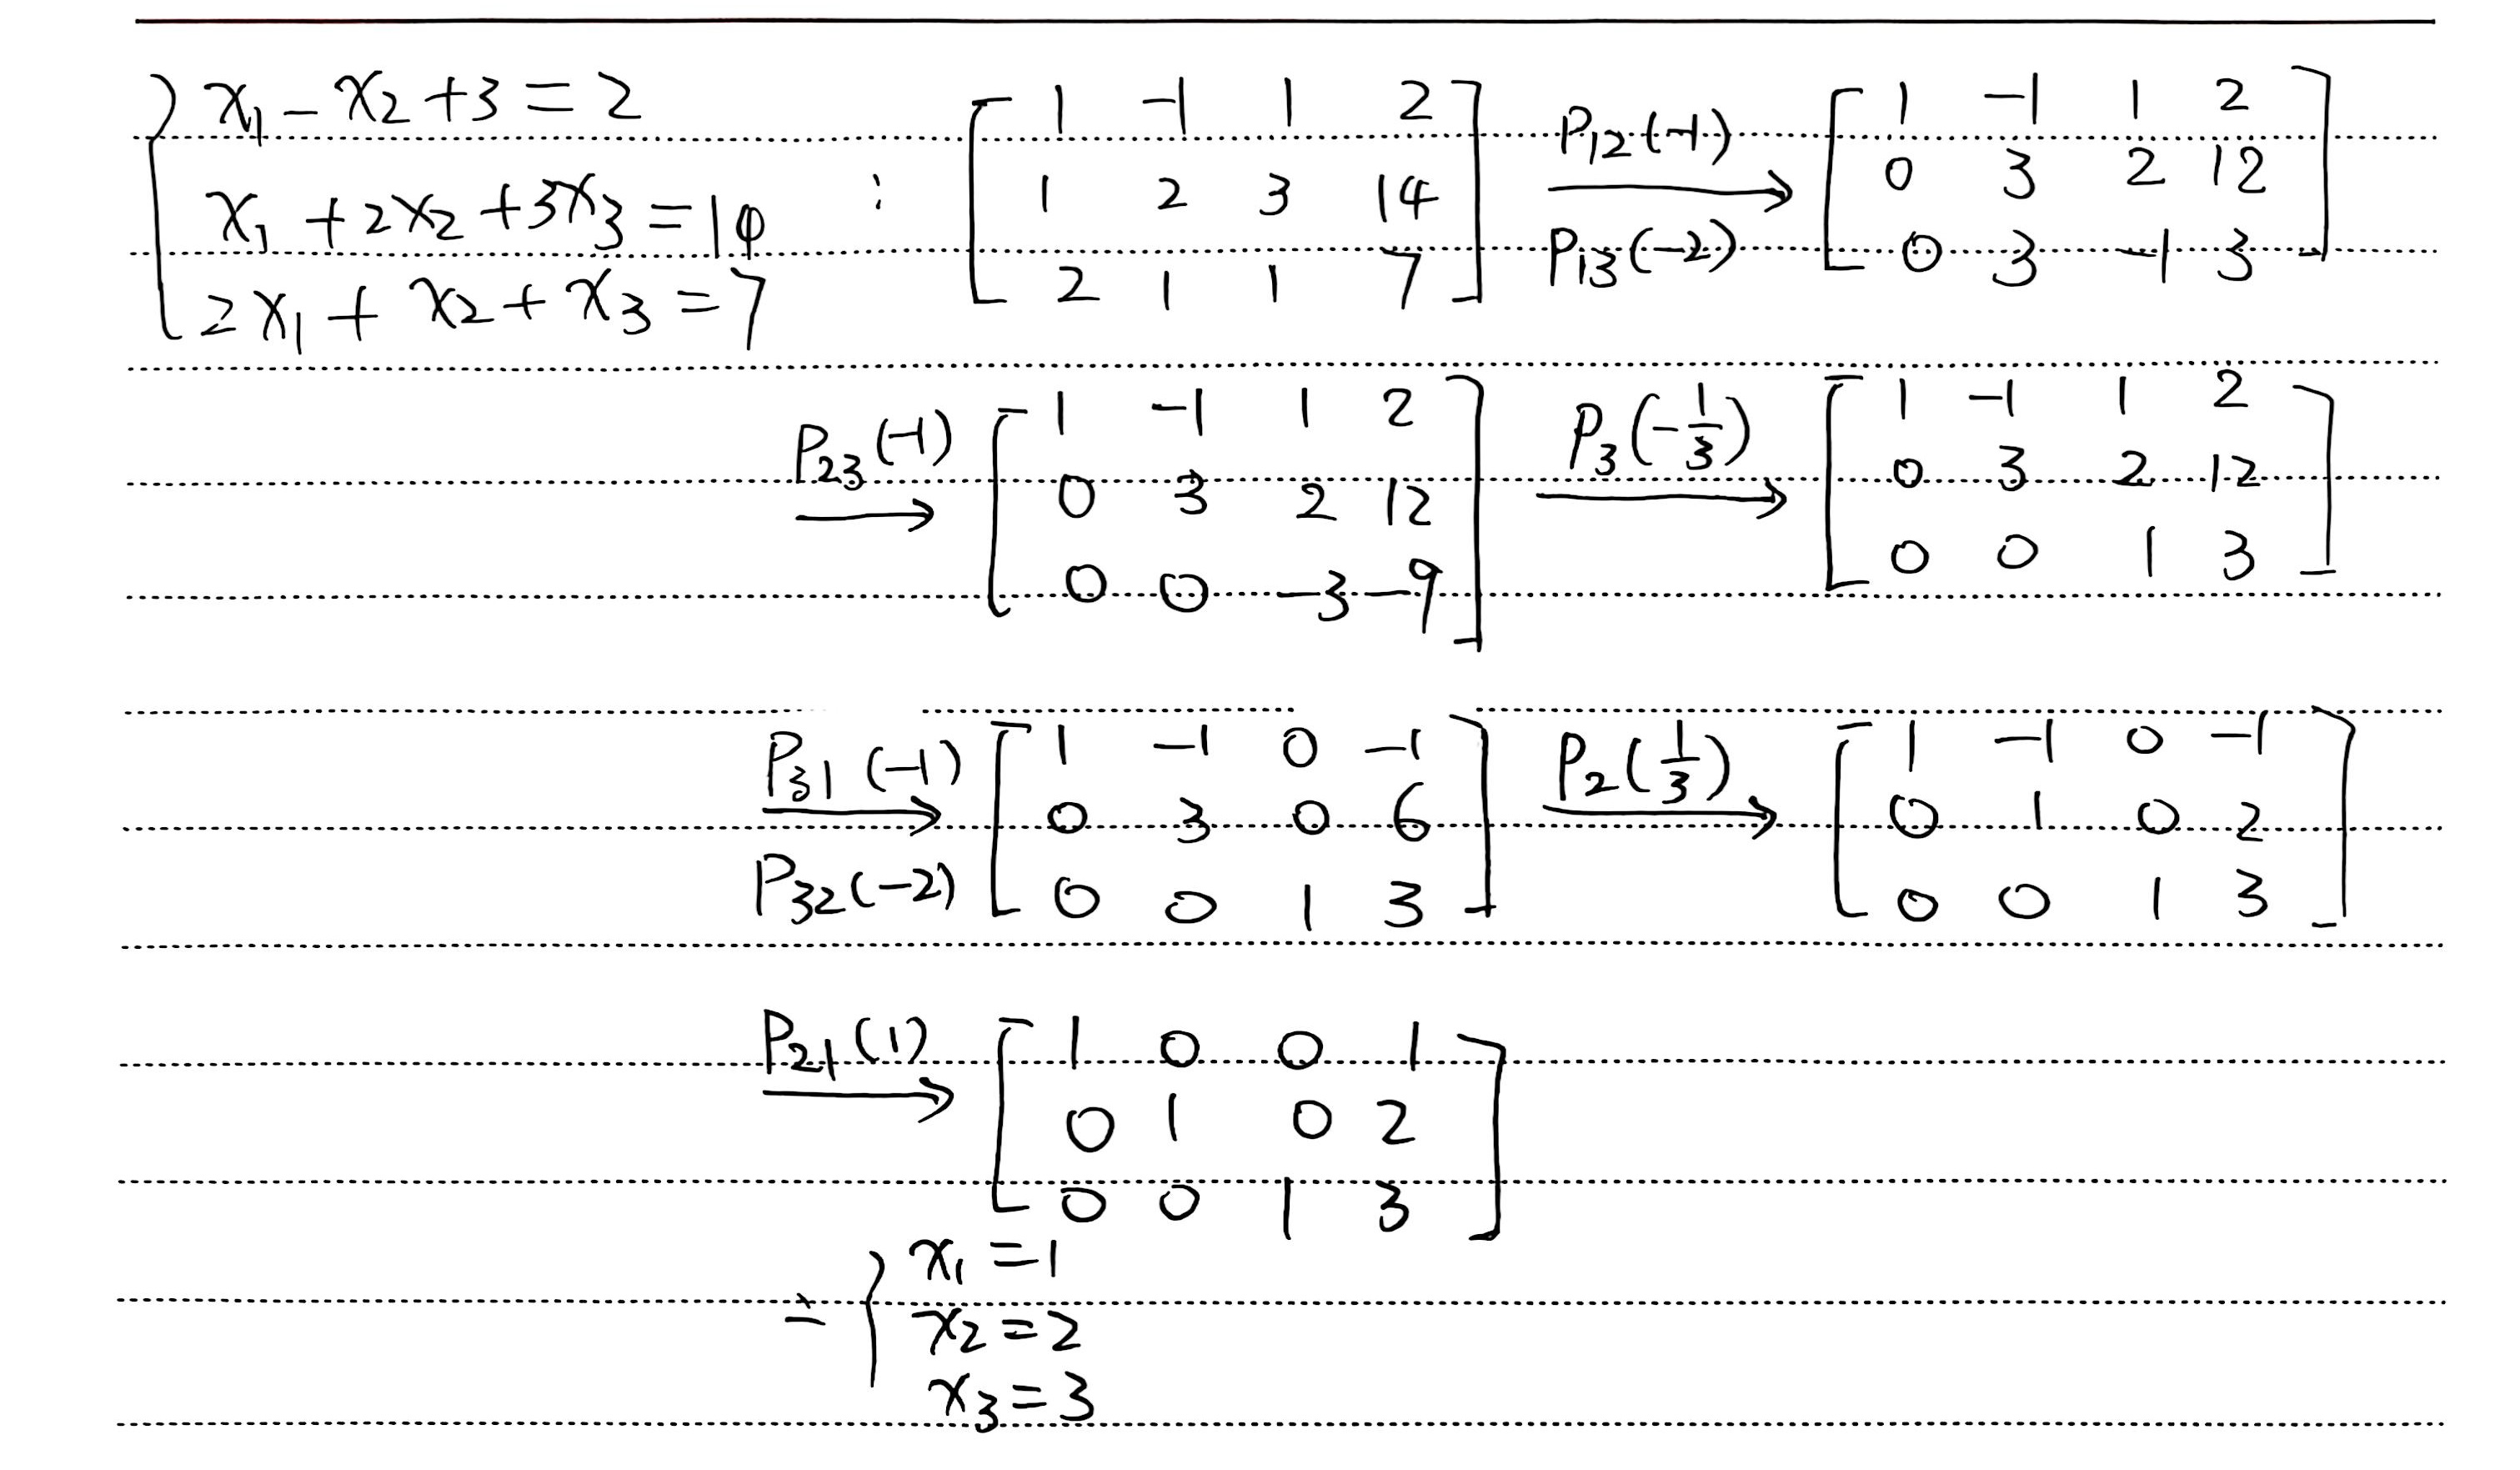 x₁ - x₂ + 3 = 2
x₁ + 2x₂ + 3x₃ = 14
2x₁ + x₂ + x₃ = 7
:
[ 1 -1 1 2
1 2 3 14
2 1 1 7 ]
P₁₂(-1)
→
P₁₃(-2)
[ 1 -1 1 2
0 3 2 12
0 3 -1 3 ]
P₂₃(-1)
→
[ 1 -1 1 2
0 3 2 12
0 0 -3 -9 ]
P₃(-1/3)
→
[ 1 -1 1 2
0 3 2 12
0 0 1 3 ]
P₃₁(-1)
→
P₃₂(-2)
[ 1 -1 0 -1
0 3 0 6
0 0 1 3 ]
P₂(1/3)
→
[ 1 -1 0 -1
0 1 0 2
0 0 1 3 ]
P₂₁(1)
→
[ 1 0 0 1
0 1 0 2
0 0 1 3 ]
x₁ = 1
x₂ = 2
x₃ = 3